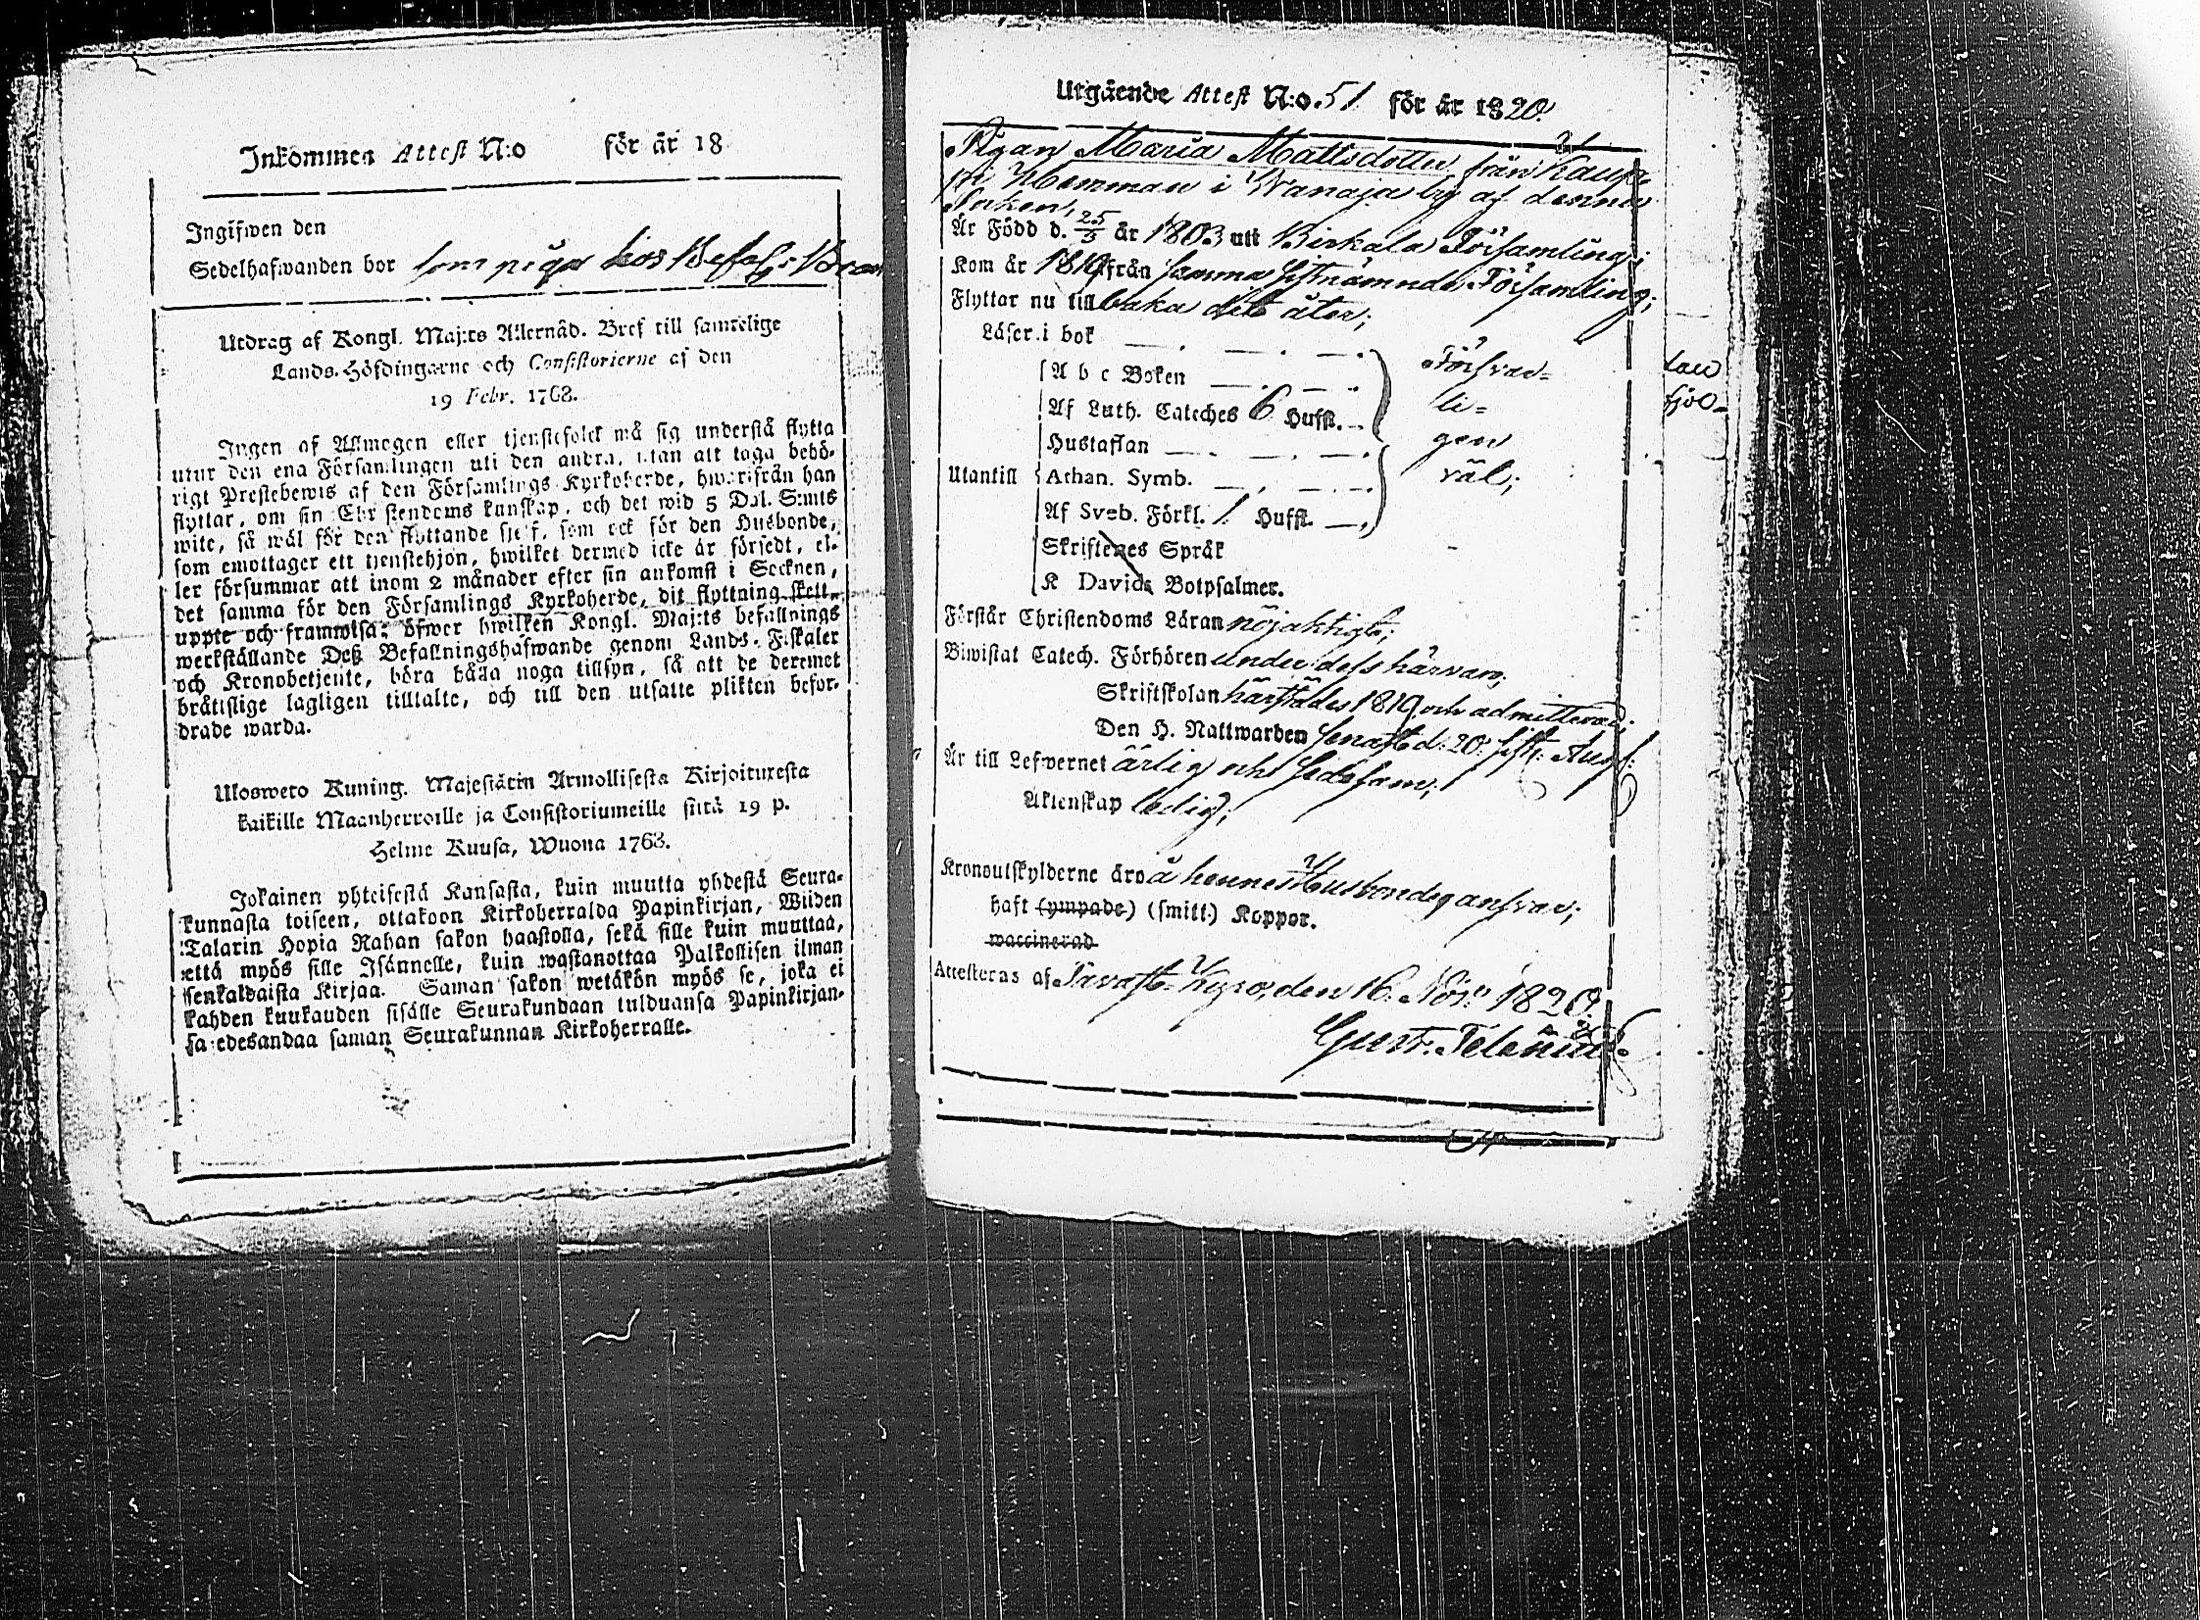 Inkommen Attest N:o för år 18
Ingifwen den
Sedelhafwanden bor som piga hos Befal:
Utdrag af Kongl. Maj:ts Allernåd. Bref till samtelige
Lands-Höfdingarne och Consistorierne af den
19 Febr. 1768.
Ingen af Allmogen eller tjenstefolck må sig understå flytta
utur den ena Församlingen uti den andra, utan att taga behö-
rigt Prestebewis af den Församlings Kyrkoherde, hwarifrån han
flyttar, om sin Christendoms kunskap, och det wid 5 Dal. S:mts
wite, så wäl för den flyttande sjelf, som ock för den Husbonde,
som emottager ett tjenstehjon, hwilket dermed icke är försedt, el-
ler försummar att inom 2 månader efter sin ankomst i Socknen,
det samma för den Församlings Kyrkoherde, dit flyttning skett,
uppte och framwisa: öfwer hwilken Kongl. Maj:ts befallnings
werkställande Deß Befallningshafwande genom Lands-Fiskaler
och Kronobetjente, böra hålla noga tillsyn, så att de deremot
bråttslige lagligen tilltalte, och till den utsatte plikten befor-
drade warda.
Ulosweto Kuning. Majestätin Armollisesta Kirjoituxesta
kaikille Maanherroille ja Consistoriumeille siitä 19 p.
Helme Kuusa, Wuona 1763.
Jokainen yhteisestä Kansasta, kuin muutta yhdestä Seura-
kunnasta toiseen, ottakoon Kirkoherralda Papinkirjan, Wiiden
Talarin Hopia Rahan sakon haastolla, sekä sille kuin muuttaa,
että myös sille Isännelle, kuin wastanottaa Palkollisen ilman
senkaldaista Kirjaa. Saman sakon wetäkön myös se, joka ei
kahden kuukauden sisälle Seurakundaan tulduansa Papinkirjan-
sa edesandaa saman Seurakunnan Kirkoherralle.
Utgående Attest N:o 51. för år 1820.
Pigan Maria Mattsdotter från Kaup-
pi Hemman i Wanaja by af denna
Socken,
Är Född d. 25/3 år 1803 uti Birkala Församling;
Kom år 1819 från samma sistnämnde Församling;
Flyttar nu tillbaka dit åter;
Läser i bok
A b c Boken Försvar-
Af Luth. Cateches 6 Hufst. li-
Hustaflan gen
Utantill Athan. Symb. väl;
Af Sveb. Förkl. 1. Hufst.
Skriftenes Språk
K Davids Botpsalmer.
Förstår Christendoms Läran nöjaktigt;
Biwistat Catech. Förhören under dess härvaro;
Skriftskolan härstädes 1819 och admitterad;
Den H. Nattwarden senast d: 20. sistl: Aug:
Är till Lefvernet ärlig och sedesam;
Äktenskap ledig;
Kronoutskylderne äro å hennes Husbondes ansvar;
haft (ympade) (smitt.) Koppor.
waccinerad
Attesteras af Tavast-Kyro, den 16. Nov: 1820.
Gust: Telenius